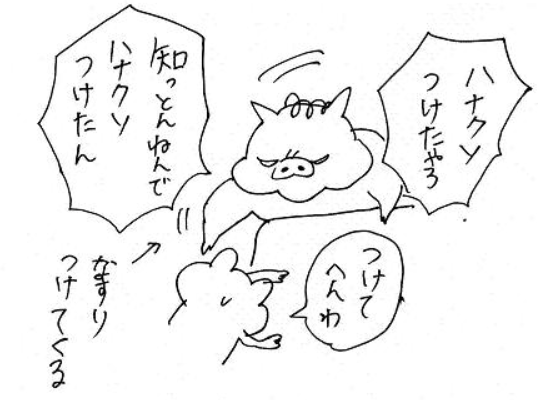 ハナクソ
つけたやろ
つけて
へんわ
知っとんねんで
ハナクソ
つけたん
なすり
つけてくる